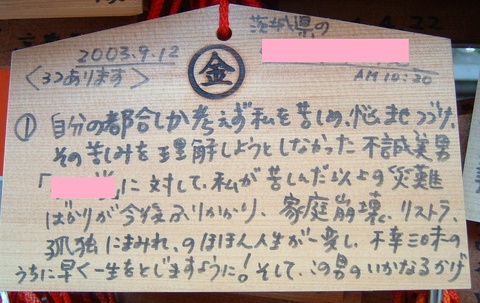 茨城県の
2003.9.12
金
<32あります>
AM 10:20
① 自分の都合しか考えず私を苦しめ、悩ませつづけ、
その苦しみを理解しようとしなかった不誠実男
「 」に対して、私が苦しんだ以上の災難
ばかりが今後ふりかかり、家庭崩壊、リストラ、
孤独にまみれ、のほほん人生が一変し、不幸三昧の
うちに早く一生をとじますように!そして、この男のいかなるかげ